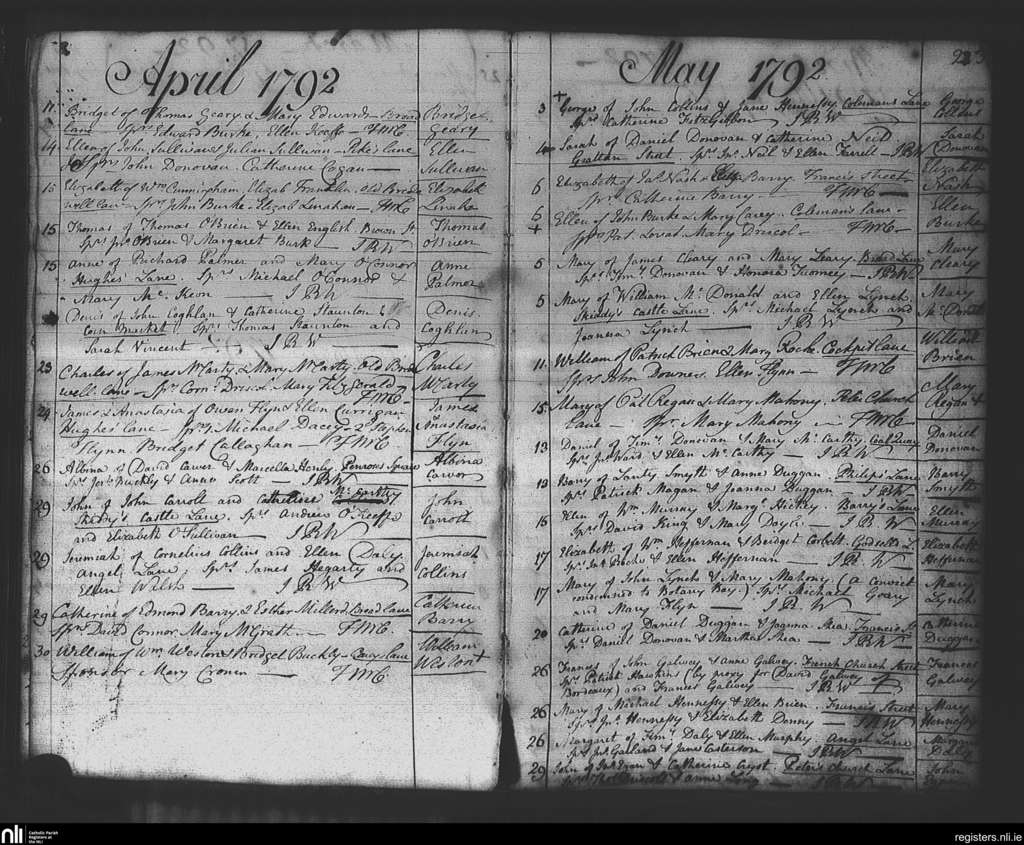 April 1792
11 Bridget of Thomas Geary & Mary Edwards Broad
Lane Sprs Edward Burke, Ellen Keeffe — FMC
Bridget
Geary
14 Ellen of John Sullivan & Julian Sullivan — Pike's lane
Sprs John Donovan Catherine
Ellen
Sullivan
15 Elizabeth of Wm Cunningham, Elizab Franklin Old Bride
well lane — Sprs John Burke. Elizab Linahan — FMC
Elizabeth
15 Thomas of Thomas OBrien & Ellen English Brown St
Sprs Jno OBrien & Margaret Burk — JBW
Thomas
OBrien
15 Anne of Richard Palmer and Mary O'Connor
Hughes' Lane, Sprs Michael O'Connor &
Mary Mc Keon — JBW
Anne
Palmer
Denis of John Coghlan & Catherine Staunton
Corn Market, Sprs Thomas Staunton and
Sarah Vincent — JBW
Denis
Coghlan
23 Charles of James McCarty & Mary McCarty Old Bride
well lane — Sprs Corns Driscol. Mary Fitzgerald
FMC
Charles
McCarty
24 James & Anastasia of Owen Flyn & Ellen Currigan
Hughes' lane — Sprs Michael Dacey — 2d Stephen
Flynn Bridget Callaghan — FMC
James
Anastasia
Flyn
26 Albina of David Carver & Marcella Henly Penrose Square
Sprs Jos Buckly & Anne Scott — JBW
Albina
Carver
29 John of John Carroll and Catherine Mc Carthy
Skiddy's Castle Lane. Sprs Andrew O'Keeffe
and Elizabeth O'Sullivan — JBW
John
Carroll
29 Jeremiah of Cornelius Collins and Ellen Daly
Angel Lane, Sprs James Hegarty and
Ellen Walsh — JBW
Jeremiah
Collins
29 Catherine of Edmond Barry & Esther Millerd. Broad lane
Sprs David Connor Mary McGrath — FMC.
Catherine
Barry
30 William of Wm Weston & Bridget Buckly — lane
Sponsor Mary Cronen — FMC
William
Weston +
May 1792
3 + George of John Collins & Jane Hennessy Colemans Lane
Sprs Catherine Fitzgibbon — JBW
George
Collins
4 Sarah of Daniel Donovan & Catherine Neil
Grattan Street. Sprs Jno Neil & Ellen Farrell — JBW
Sarah
Donovan
6 Elizabeth of Jas Nash & Barry. Francis Street
Spr Catherine Barry — FMC —
Elizabeth
Nash
5 + Ellen of John Burke & Mary Carey. Coleman's lane —
Sprs Pat Lovat Mary Driscol — FMC —
Ellen
Burke
5 Mary of James Cleary and Mary Leary. Broad Lane
Sprs Donovan & Honora Twomey — JBW
Mary
Cleary
5 Mary of William Mc Donald and Ellen Lynch,
Skiddy's Castle Lane. Sprs Michael Lynch and
Joanna Lynch — JBW
Mary
Mc Donald
11 William of Patrick Brien & Mary Roche. Cockpit lane
Sprs John Downes. Ellen Flyn — FMC
William
Brien
15 Mary of Pat Regan & Mary Mahony. Peter Church
Lane — Spr Mary Mahony — FMC —
Mary
Regan
13 Daniel of Timy Donovan & Mary Mc Carthy Coal Quay
Sprs Jno Ward & Ellen McCarthy — JBW
Daniel
Donovan
13 Barry of Lanty Smyth & Anne Duggan. Philips' Lane
Sprs Patrick Magan & Joanna Duggan — JBW
Barry
Smyth
15 Ellen of Wm Murray & Margt Hickey. Barry's Lane
Sprs David King & Mary Doyle — JBW
Ellen
Murray
17 Elizabeth of Wm Heffernan & Bridget Corbett.
Sprs Jno Roche & Ellen Heffernan — JBW
Elizabeth
Heffernan
17 Mary of John Lynch & Mary Mahony (a Convict
condemned to Botany Bay) Sprs Michael Geary
and Mary Flyn — JBW
Mary
Lynch
20 Catherine of Daniel Duggan & Joanna Shea Francis St
Sprs Daniel Donovan & Martha Shea — JBW
Catherine
Duggan
26 Frances of John Galwey & Anne Galwey. French Church Street
Sprs Patrick Hawkins (by proxy for David Galwey of
Bordeaux) and Frances Galwey — JBW
Frances
Galwey
26 Mary of Michael Hennessy & Ellen Brien. Francis Street
Sprs Jno Hennessy & Elizabeth Denny — JBW
Mary
Hennessy
26 Margaret of Timy Daly & Ellen Murphy Angel Lane
Sprs Jno Garland & Jane Casterson — JBW
Margaret
Daly
29 John of Egan & Catherine Peter's Church Lane
John
nli
Catholic Parish
Registers at
the NLI
registers.nli.ie